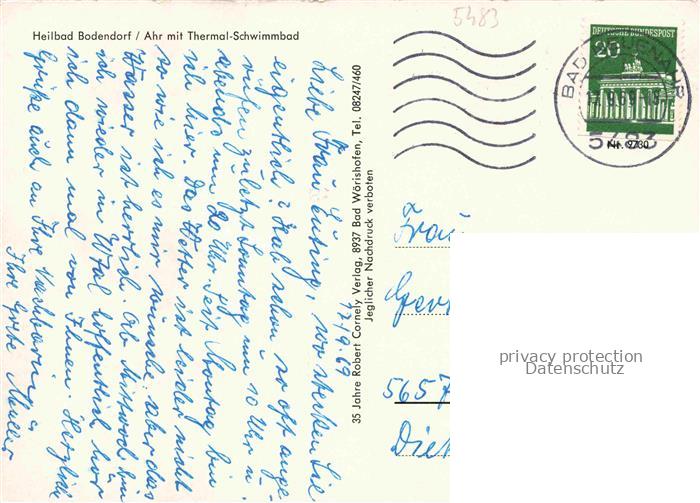 5483
Heilbad Bodendorf / Ahr mit Thermal-Schwimmbad
DEUTSCHE BUNDESPOST
20
BAD NEUENAHR
5483
Nr. 9730
17.9.69
Liebe Frau Euting, wo stecken Sie
eigentlich? Hab schon so oft ange-
rufen zuletzt Sonntag um 10 Uhr u.
abends um 20 Uhr. Seit Montag bin
ich hier. Das Wetter ist leider nicht
so wie ich es mir wünsche, aber das
Wasser ist herrlich. Ab Mittwoch bin
ich wieder in Wtal hoffentlich hör
ich dann mal von Ihnen. Herzliche
Grüße auch an Ihre Nachbarin
Ihre Grete Müller
35 Jahre Robert Cornely Verlag, 8937 Bad Wörishofen, Tel. 08247/460
Jeglicher Nachdruck verboten
Frau
565
privacy protection
Datenschutz